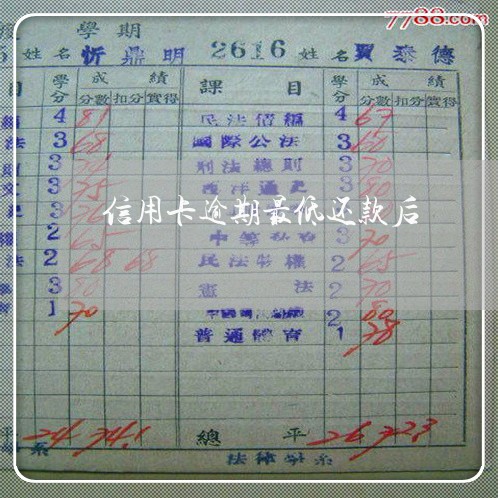 7788.com
學期
姓名 忻鼎明 2616 姓名 賈泰德
目 學分 成績 課目 學分 成績
分數 扣分 實得 分數 扣分 實得
4 81 民法債編 4 67
法 3 68 國際公法 3 60
3 刑法總則 3 70
3 75 西洋通史 3 80
信用卡逾期最低还款后
2 65 3 70
法 2 68 68 民法物權 2 65
3 80 憲法 2 70
1 70 2 80
普通體育 1 78
平 24 74.1 總平 26 72.3
系 法律學系